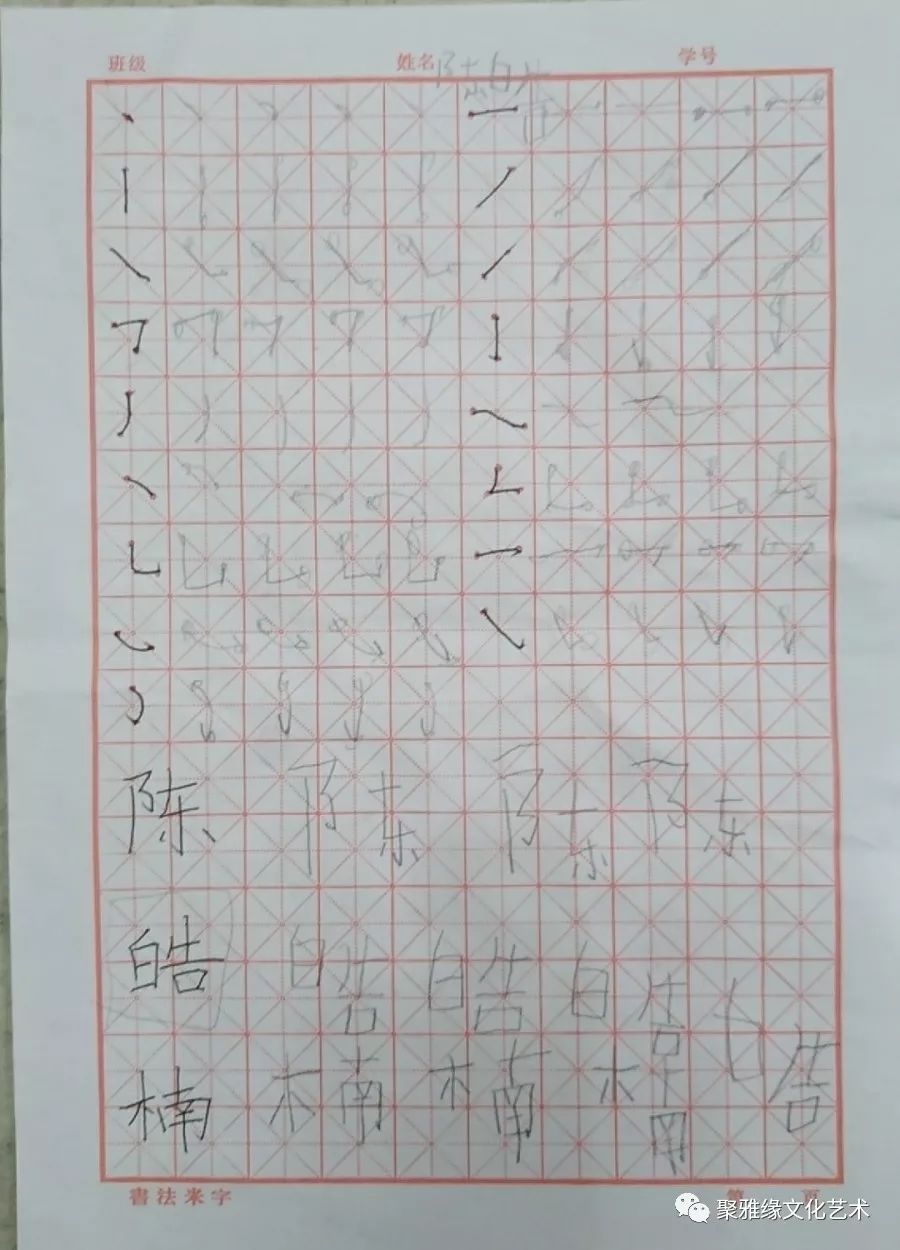 班级 姓名 陈皓 学号
陈 陈 陈 陈
皓 皓 皓 皓 皓
楠 楠 楠 楠
書法米字 第 页
聚雅缘文化艺术